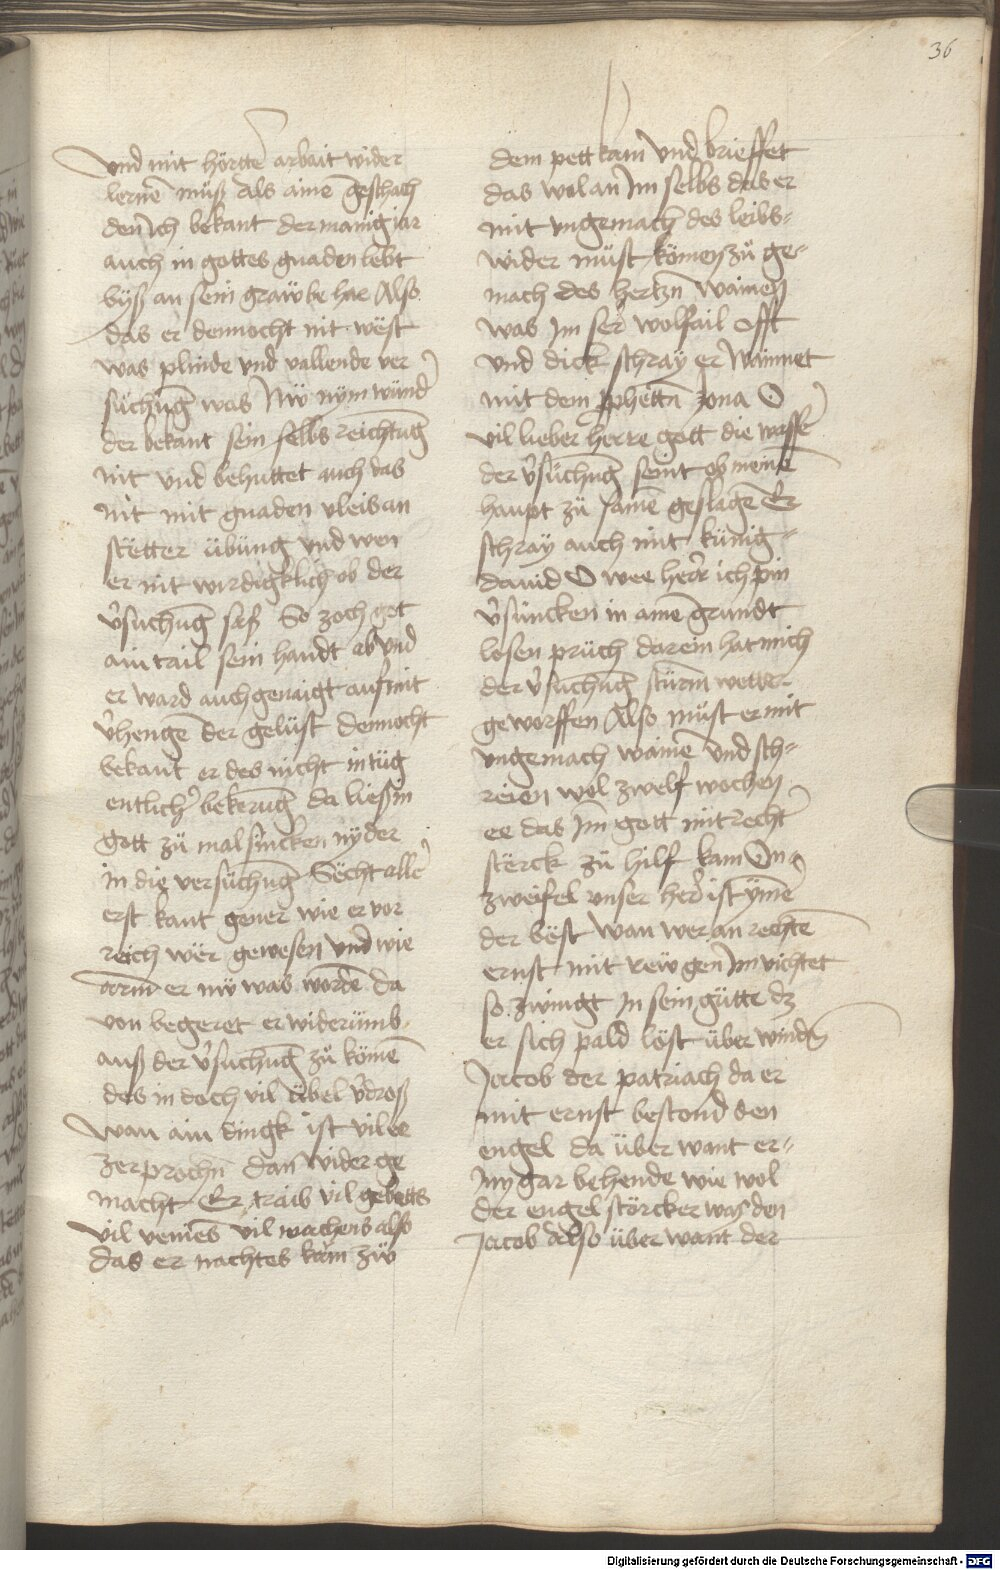 36
vnd mit hörtte᷑ arbait wider
lernē müß Als ainē geschach
den Ich bekant der manig iar
auch in gottes gnaden lebt
byß an sein graẅbe har Also
das er dennocht nit wëst
was plinde vnd vallende ver
süchūg was Nẅ nym wund᷑
der bekant sein selbs reichtūg
nit vnd behuttet auch das
nit mit gnaden vleis an
stëtter übüng vnd wen
er nit wirdigklich ob der
v᷑suchūg saß So zoch got
ain tail sein handt ab vnd
er ward auch genaigt auf mit
v᷑hengē der gelüst dennocht
bekant er des nicht in tüg
entlich᷑ bekerūg da ließ in
gott zů mal sincken nÿder
in die versüchūg Sëcht aller᷑
erst kant gener wie er vor
reich wër gewesen vnd wie
arm er nẅ was wordē da
von begeret er widerümb
auß der v᷑suchūg zů kömē
des in doch vil übel v᷑droß
wan ain dingk ist vil ee
zerprochn̄ dan wider ge
macht Er traib vil gebetts
vil veniēs vil wachens also
das er nachtes kam zẅ
dem pett kam vnd brieffet
das wol an Im selbs das er
mit vngemach des leibs-
wider müst kömen zů ge-
mach des hertzn̄ wainen
was Im ser wolfail offt
vnd dick schraÿ er wainnet
mit dem ꝓphettn̄ Jona O
vil lieber herre gott die waffe᷑
der v᷑süchūg seint ob meinē
haupt zü samē geslagē Er
schraÿ auch mit künig-
dauid O wee her᷑r ich pin
v᷑suncken in ainē grundt
losen prüch darein hat mich
der v᷑suchūg stürm wetter
geworffen Also müst er mit
vngemach wainē vnd sch-
reien wol zwelf wochen
ee das Im gott mit recht᷑
stërck zü hilf kam On-
zweifel vnser her᷑ ist ÿmē
der bëst wan wer an rechtē
ernst mit reẅgen Im vichtet
so zwingt In sein gütte dz
er sich pald löst über windn̄
Jacob der patriach da er
mit ernst bestond den
engel da über want er-
Iny gar behende wie wol
der engel störcker was den
Jacob Also über want der
Digitalisierung gefördert durch die Deutsche Forschungsgemeinschaft - DFG